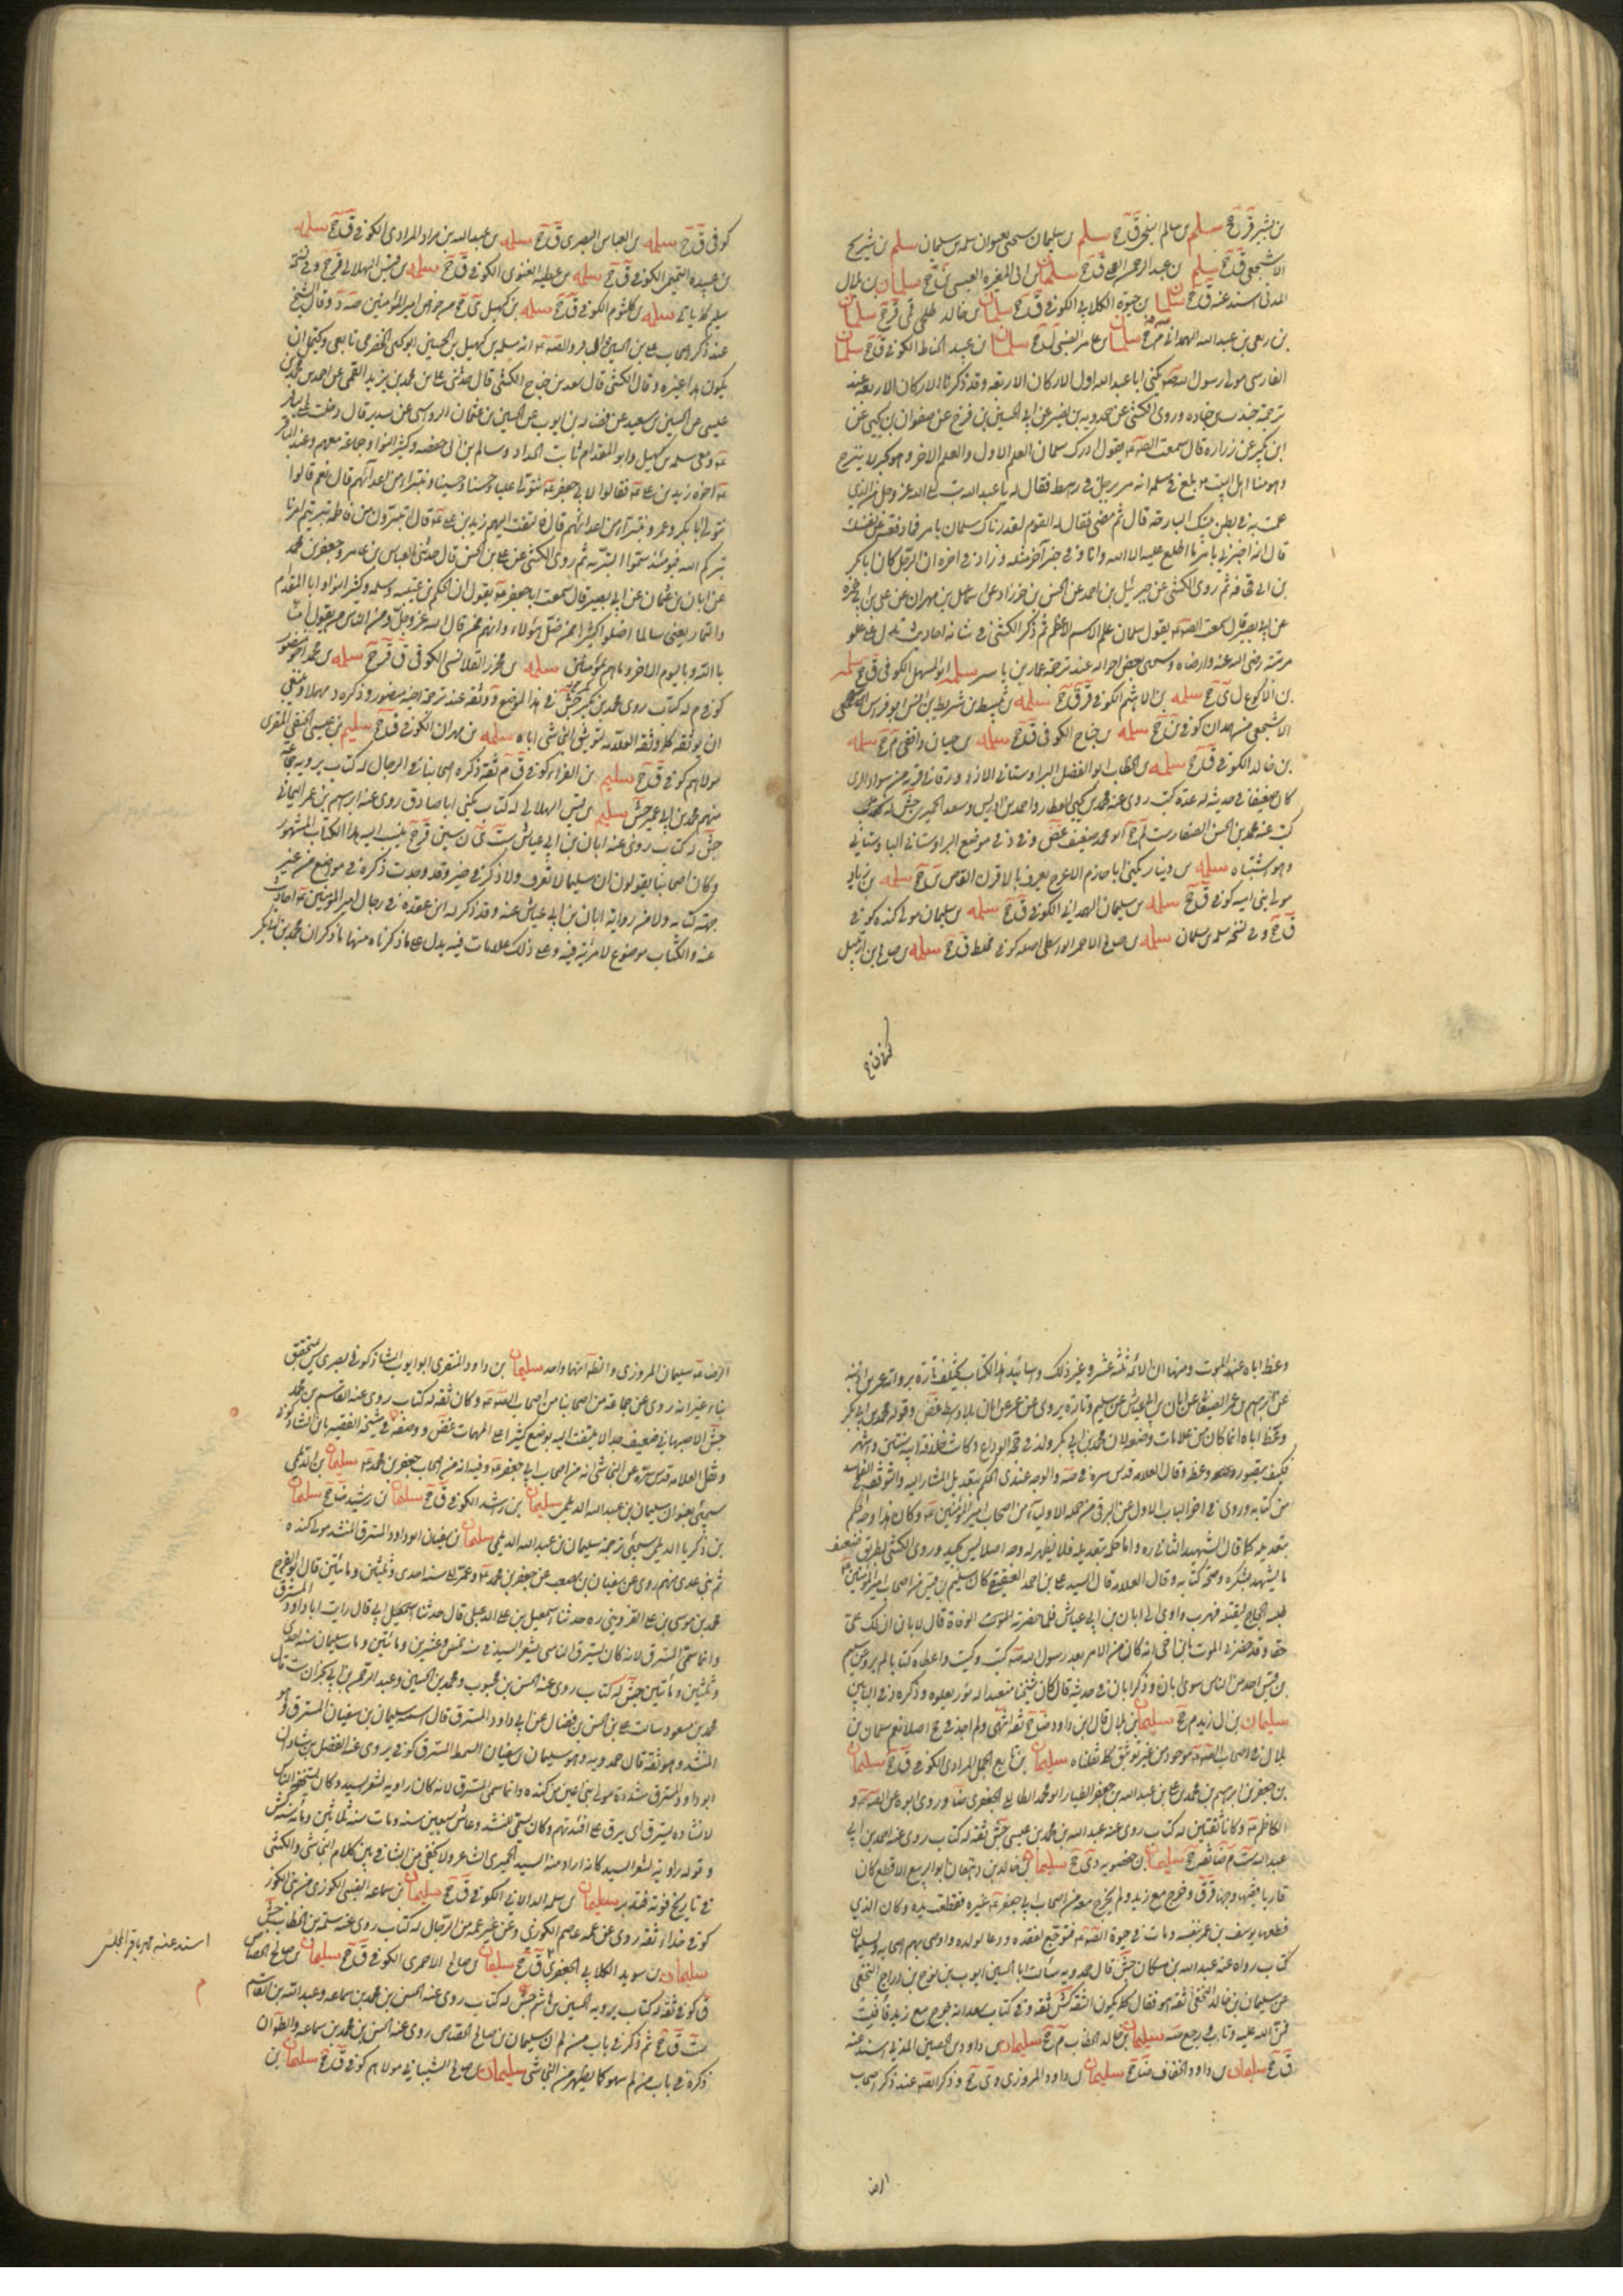 بن بشير ق ج سلم بن سالم البلخي ق ج سلم بن سليمان سيجئ بعنوان سلمة بن سليمان سلم بن شريح
الاشجعي ق ج سلم بن عبد الرحمن ق ج سلمان بن ابي المغيرة العبسي ين ج سلمان بن بلال
المدني اسند عنه ق ج سلمان بن حيوة الكلابي الكوفي ق ج سلمان بن خالد طلحي قي ق ج سلمان
بن ربعي بن عبد الله الهمداني ق ج سلمان بن عامر الضبي ل ج سلمان بن عبد الله الحناط الكوفي ق ج سلمان
الفارسي مولى رسول الله ص يكنى ابا عبد الله اول الاركان الاربعة وقد ذكرنا الاركان الاربعة عند
ترجمة جندب بن جنادة وروى الكشي عن حمدويه بن نصير عن ابي الحسين بن نوح عن صفوان بن يحيى عن
ابن بكير عن زرارة قال سمعت الصادق ع يقول ادرك سلمان العلم الاول والعلم الاخر وهو بحر لا ينزح
وهو منا اهل البيت بلغ من علمه انه مر برجل في رهط فقال له يا عبد الله تب الى الله عز وجل من الذي
عملت به في بطن بيتك البارحة قال ثم مضى فقال له القوم لقد رماك سلمان بامر فما دفعته عن نفسك
قال انه اخبرني بامر ما اطلع عليه الا الله وانا وفي خبر آخر مثله وزاد في اخره ان الرجل كان ابا بكر
بن ابي قحافة ثم روى الكشي عن جبرئيل بن احمد عن الحسن بن خرزاد عن اسماعيل بن مهران عن علي بن ابي حمزة
عن ابي بصير قال سمعت الصادق ع يقول سلمان علم الاسم الاعظم ثم ذكر الكشي في شانه احاديث تدل على علو
مرتبته رضي الله عنه وارضاه وسيجئ بعض احواله عند ترجمة عمار بن ياسر سلمة ابو المسهل الكوفي ق ج سلمة
بن الاكوع ل ي ج سلمة بن الاهثم الكوفي ق ج سلمة بن نبيط بن شريط بن انس ابو فراس
الاشجعي من همدان كوفي ق ج سلمة بن جناح الكوفي ق ج سلمة بن حيان واقفي م ج سلمة
بن خالد الكوفي ق ج سلمة بن الخطاب ابو الفضل البراوستاني الازدورقاني قرية من سواد الري
كان ضعيفا في حديثه له عدة كتب روى عنه محمد بن يحيى العطار واحمد بن ادريس وسعد والحميري جش له
كتب عنه محمد بن الحسن الصفار ست لم ج ابو محمد ضعيف غض وفي د في موضع البراوستاني الباوستاني
وهو اشتباه سلمة بن دينار يكنى ابا حازم الاعرج يعرف بالافزر القاص ين ج سلمة بن زياد
مولى بني امية كوفي ق ج سلمة بن سليمان الهمداني الكوفي ق ج سلمة بن سليمان مولى كندة كوفي
ق ج وفي نسخة سلمة بن سلمان سلمة بن صالح الاحمر الواسطي اصله كوفي مخلط ق ج سلمة بن صالح بن ارتبيل
كوفي ق ج
كوفي ق ج سلمة بن العباس البصري ق ج سلمة بن عبد الله بن مراد المرادي الكوفي ق ج سلمة
بن عبيدة التميمي الكوفي ق ج سلمة بن عطية الغنوي الكوفي ق ج سلمة بن قيس الهلالي ق ج وفي نسخة
سليم كما ياتي سلمة بن كلثوم الكوفي ق ج سلمة بن كهيل ي ج من خواص امير المؤمنين صه د وقال الشيخ
عند ذكر اصحاب علي بن الحسين والباقر والصادق ع انه سلمة بن كهيل بن الحصين ابو يحيى الحضرمي تابعي ويحتمل ان
يكون هذا غيره وقال الكشي قال سعد بن جناح الكشي قال حدثني علي بن محمد بن يزيد القمي عن احمد بن محمد بن
عيسى عن الحسين بن سعيد عن فضالة بن ايوب عن الحسين بن عثمان الرواسي عن سدير قال دخلت على الباقر
ع ومعي سلمة بن كهيل وابو المقدام ثابت الحداد وسالم بن ابي حفصة وكثير النوا وجماعة معهم وعند الباقر
ع اخوه زيد بن علي ع فقالوا لابي جعفر ع نتولى عليا وحسنا وحسينا ونتبرا من اعدائهم قال نعم قالوا
نتولى ابا بكر وعمر ونتبرا من اعدائهم قال فالتفت اليهم زيد بن علي ع قال اتتبرؤن من فاطمة بترتم امرنا
بتركم الله فيومئذ سموا البترية ثم روى الكشي عن علي بن الحسن قال حدثني العباس بن عامر وجعفر بن محمد
عن ابان بن عثمان عن ابي بصير قال سمعت ابا جعفر ع يقول ان الحكم بن عتيبة وسلمة وكثير النوا وابا المقدام
والتمار يعني سالما اضلوا كثيرا ممن ضل من هؤلاء وانهم ممن قال الله عز وجل ومن الناس من يقول آمنا
بالله وباليوم الاخر وما هم بمؤمنين سلمة بن محرز القلانسي الكوفي ق ق ج سلمة بن محمد اخو منصور
كوفي م له كتاب روى محمد بن عمير جش في هذا الموضع ووثقه عند ترجمة اخيه منصور وذكره د مهملا وينبغي
ان يوثقه كما وثقه العلامة لتوثيق النجاشي اياه سلمة بن مهران الكوفي ق ج سليم بن عيسى الحنفي المقري
مولاهم كوفي ق ج سليم بن الفراء كوفي ق م ثقة ذكره اصحابنا في الرجال له كتاب يرويه جماعة
منهم محمد بن ابي عمير جش سليم بن قيس الهلالي له كتاب يكنى ابا صادق روى عنه ابرهيم بن عمر اليماني
جش له كتاب روى عنه ابان بن ابي عياش ست ي ن سين ق ج ينسب اليه هذا الكتاب المشهور
وكان اصحابنا يقولون ان سليما لا يعرف ولا ذكر في خبر وقد وجدت ذكره في مواضع من غير
جهة كتابه ولا من رواية ابان بن ابي عياش عنه وقد ذكر له ابن عقدة في رجال امير المؤمنين ع احاديث
عنه والكتاب موضوع لا مرية فيه وعلى ذلك علامات فيه يدل على ما ذكرناه منها ما ذكر ان محمد بن ابي بكر
وعظ اباه عند الموت ومنها ان الائمة ثلثة عشر وغير ذلك واسانيد هذا الكتاب تختلف تارة برواية عمر بن اذينة
عن ابرهيم بن عمر الصنعاني عن ابان بن ابي عياش عن سليم وتارة يروى عن عمر عن ابان بلا واسطة غض وقوله محمد بن ابي بكر
وعظ اباه انما كان من علامات وضعه لان محمد بن ابي بكر ولد في حجة الوداع وكانت خلافة ابيه سنتين واشهر
فكيف يتصور وعظ وقال العلامة قدس سره في صه والوجه عندي الحكم بتعديل المشار اليه والتوقف في الفاسد
من كتابه وروى في اخر الباب الاول عن البرقي من جملة الاولياء من اصحاب امير المؤمنين ع وكان هذا وجه الحكم
بتعديله كما قال الشهيد الثاني ره واما حكمه بتعديله فلا يظهر له وجه اصلا ليس بجيد وروى الكشي بطريق ضعيف
ما يشهد بشكره وصحة كتابه وقال العلامة قال السيد علي بن احمد العقيقي كان سليم بن قيس من اصحاب امير المؤمنين ع
طلبه الحجاج ليقتله فهرب واوى الى ابان بن ابي عياش فلما حضرته الوفاة قال لابان ان لك علي
حقا وقد حضرني الموت يا ابن اخي انه كان من الامر بعد رسول الله ص كيت وكيت واعطاه كتابا لم يرو عن سليم
بن قيس احد من الناس سوى ابان وذكر ابان في حديثه قال كان شيخا متعبدا له نور يعلوه وذكره د في البابين
سليمان بن ابي زيد م ج سليمان بن بلال قال ابن داود ضا ج ثقة انتهى ولم اجد في ج اصلا نعم سلمان بن
بلال في اصحاب الصادق ع موجود من غير توثيق كما نقلناه سليمان بن ابي الجمل المرادي الكوفي ق ج سليمان
بن جعفر بن ابرهيم بن محمد بن علي بن عبد الله بن جعفر الطيار ابو محمد الطالبي الجعفري ضا وروى ابوه عن الصادق ع و
الكاظم ع وكانا ثقتين له كتاب روى عنه عبد الله بن محمد بن عيسى جش ثقة له كتاب روى عنه احمد بن ابي
عبد الله ست م ضا ثقة ج سليمان بن حفصويه دي ج سليمان بن خالد بن دهقان ابو الربيع الاقطع كان
قاريا فقيها وجها ق ق وخرج مع زيد ولم يخرج معه من اصحاب ابي جعفر ع غيره فقطعت يده وكان الذي
قطعها يوسف بن عمر بنفسه ومات في حيوة الصادق ع فتوجع لفقده ودعا لولده واوصى بهم اصحابه ولسليمان
كتاب رواه عنه عبد الله بن مسكان جش قال حمدويه سألت ابا الحسين ايوب بن نوح بن دراج النخعي
عن سليمان بن خالد النخعي اثقة هو فقال كما يكون الثقة كش ثقة وفي كتاب سعد انه خرج مع زيد فافلت
فمن الله عليه وتاب ورجع صه سليمان بن خالد الخطاب م ج سليمان بن داود بن الحصين المدني اسند عنه
ق ج سليمان بن داود الخفاف ضا ج سليمان بن داود المروزي دي ج وذكر ايضا عند ذكر اصحاب
الرضا
الرضا ع سليمان المروزي والظاهر انهما واحد سليمان بن داود المنقري ابو ايوب الشاذكوني بصري ليس بالمتحقق
بنا غير انه روى عن جماعة من اصحابنا من اصحاب الصادق ع وكان ثقة له كتاب روى عنه القاسم بن محمد
جش الاصبهاني ضعيف جدا لا يلتفت اليه يوضع كثيرا على المهمات غض ووصفه في مشيخة الفقيه بابن الشاذكوني
ونقل العلامة قدس سره عن النجاشي انه من اصحاب ابي جعفر ع وفيه انه من اصحاب جعفر بن محمد ع سليمان بن الديلمي
سيجئ بعنوان سليمان بن عبد الله الديلمي سليمان بن رشد الكوفي ق ج سليمان بن رشيد ضا ج سليمان
بن زكريا الديلمي سيجئ ترجمة سليمان بن عبد الله الديلمي سليمان بن سفيان ابو داود المسترق المنشد مولى كندة
ثم بني عدي منهم روى عن سفيان بن مصعب عن جعفر بن محمد ع وعمر الى سنة احدى وثلثين ومائتين قال ابو الفرج
محمد بن موسى بن علي القزويني ره حدثنا اسمعيل بن علي الدعبلي قال حدثنا اسمعيل ابي قال رايت ابا داود المسترق
وانما سمي المسترق لانه كان يسترق الناس بشعر السيد في سنة خمس وعشرين ومائتين ومات سليمان سنة احدى
وثلثين ومائتين جش له كتاب روى عنه الحسن بن محبوب ومحمد بن الحسين وعبد الرحمن بن ابي نجران ست قال
محمد بن مسعود سالت علي بن الحسن بن فضال عن ابي داود المسترق قال اسمه سليمان بن سفيان المسترق وهو
المنشد وهو ثقة قال حمدويه وهو سليمان بن سفيان السمط المسترق كوفي يروي عنه الفضل بن شاذان
ابو داود المسترق مشددة مولى بني اعين من كندة وانما سمي المسترق لانه كان راوية لشعر السيد وكان يستخفه الناس
لانشاده يسترق اي يرق على افئدتهم وكان يسمى المنشد وعاش سبعين سنة ومات سنة ثلاثين ومائة كش
وقوله راوية لشعر السيد كانه اراد منه السيد الحميري الشاعر ولا يخفى من التنافي بين كلام النجاشي والكشي
في تاريخ فوته فتدبر سليمان بن سلمة الدالاني الكوفي ق ج سليمان بن سماعة الضبي الكوزي من بني الكوز
كوفي حذاء ثقة روى عن عمه عاصم الكوزي وعن غير عمه من الرجال له كتاب روى عنه سلمة بن الخطاب جش
سليمان بن سويد الكلابي الجعفري ق ج سليمان بن صالح الاحمري الكوفي ق ج سليمان بن صالح الجصاص
ق كوفي ثقة له كتاب يرويه الحسين بن هاشم جش له كتاب روى عنه الحسن بن محمد بن سماعة وعبد الله بن القاسم
ست ق ج ثم ذكر في باب من لم ان سليمان بن صالح الجصاص روى عنه الحسن بن محمد بن سماعة والظاهر ان
ذكره في باب من لم سهو كما يظهر من النجاشي سليمان بن صالح الشيباني مولاهم كوفي ق ج سليمان بن
اسند عنه محمد باقر المجلسي
م